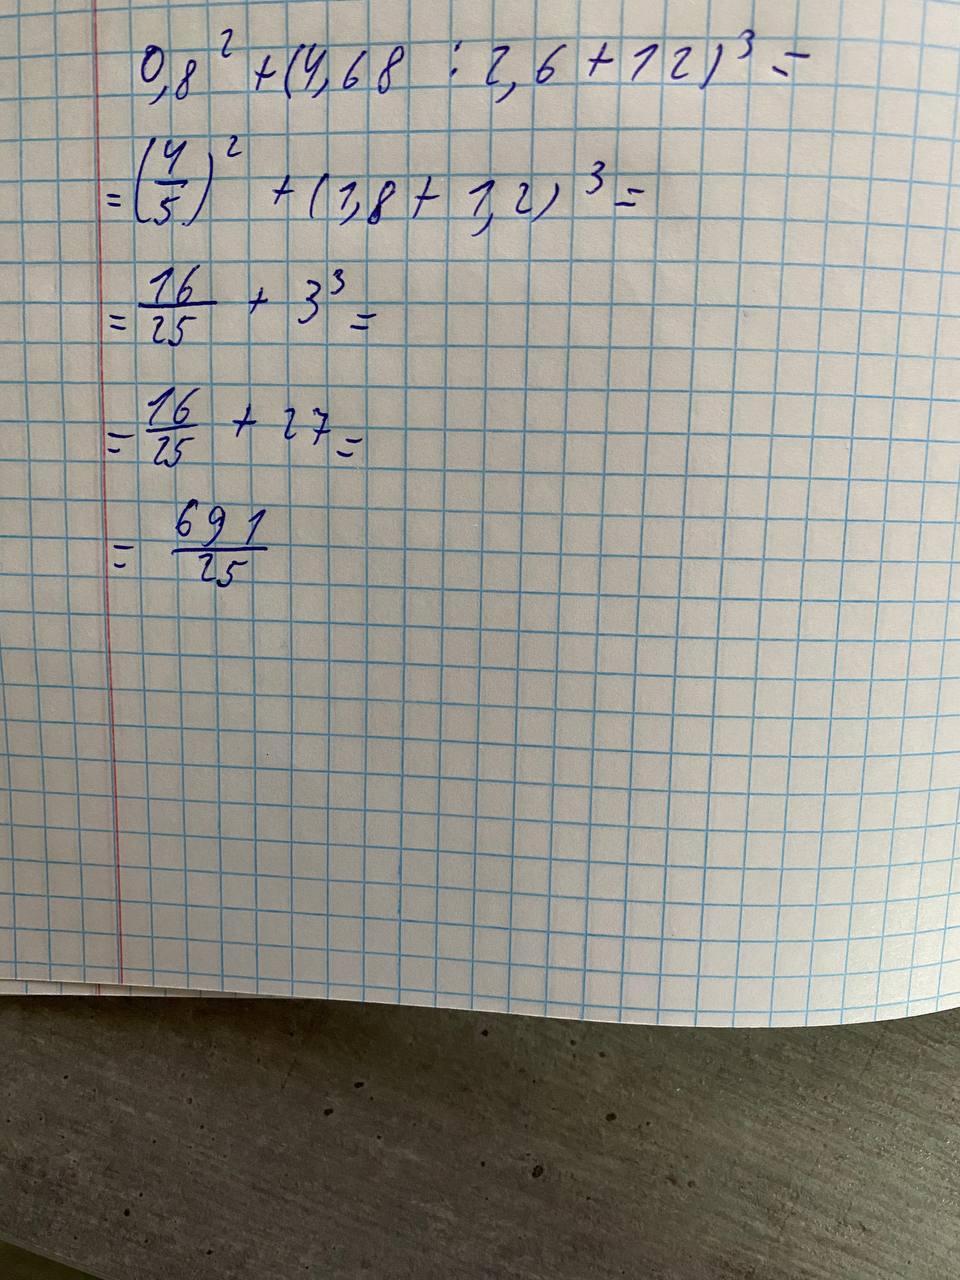 0,8² + (4,68 : 2,6 + 12)³ =
= (4/5)² + (1,8 + 1,2)³ =
= 16/25 + 3³ =
= 16/25 + 27 =
= 691/25